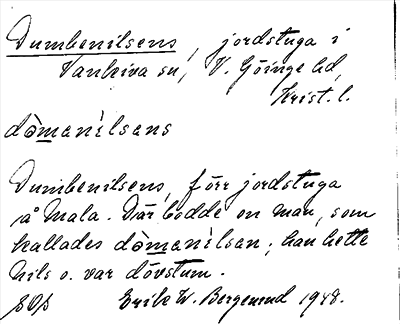 Dumbenilsens, jordstuga i
Vankiva sn, V. Göinge hd,
Krist. l.
dòmanìlsans
Dumbenilsens, förr jordstuga
på Mala. Där bodde en man, som
kallades dòmanìlsan; han hette
Nils o. var dövstum.
Erik W. Bergman 1948.